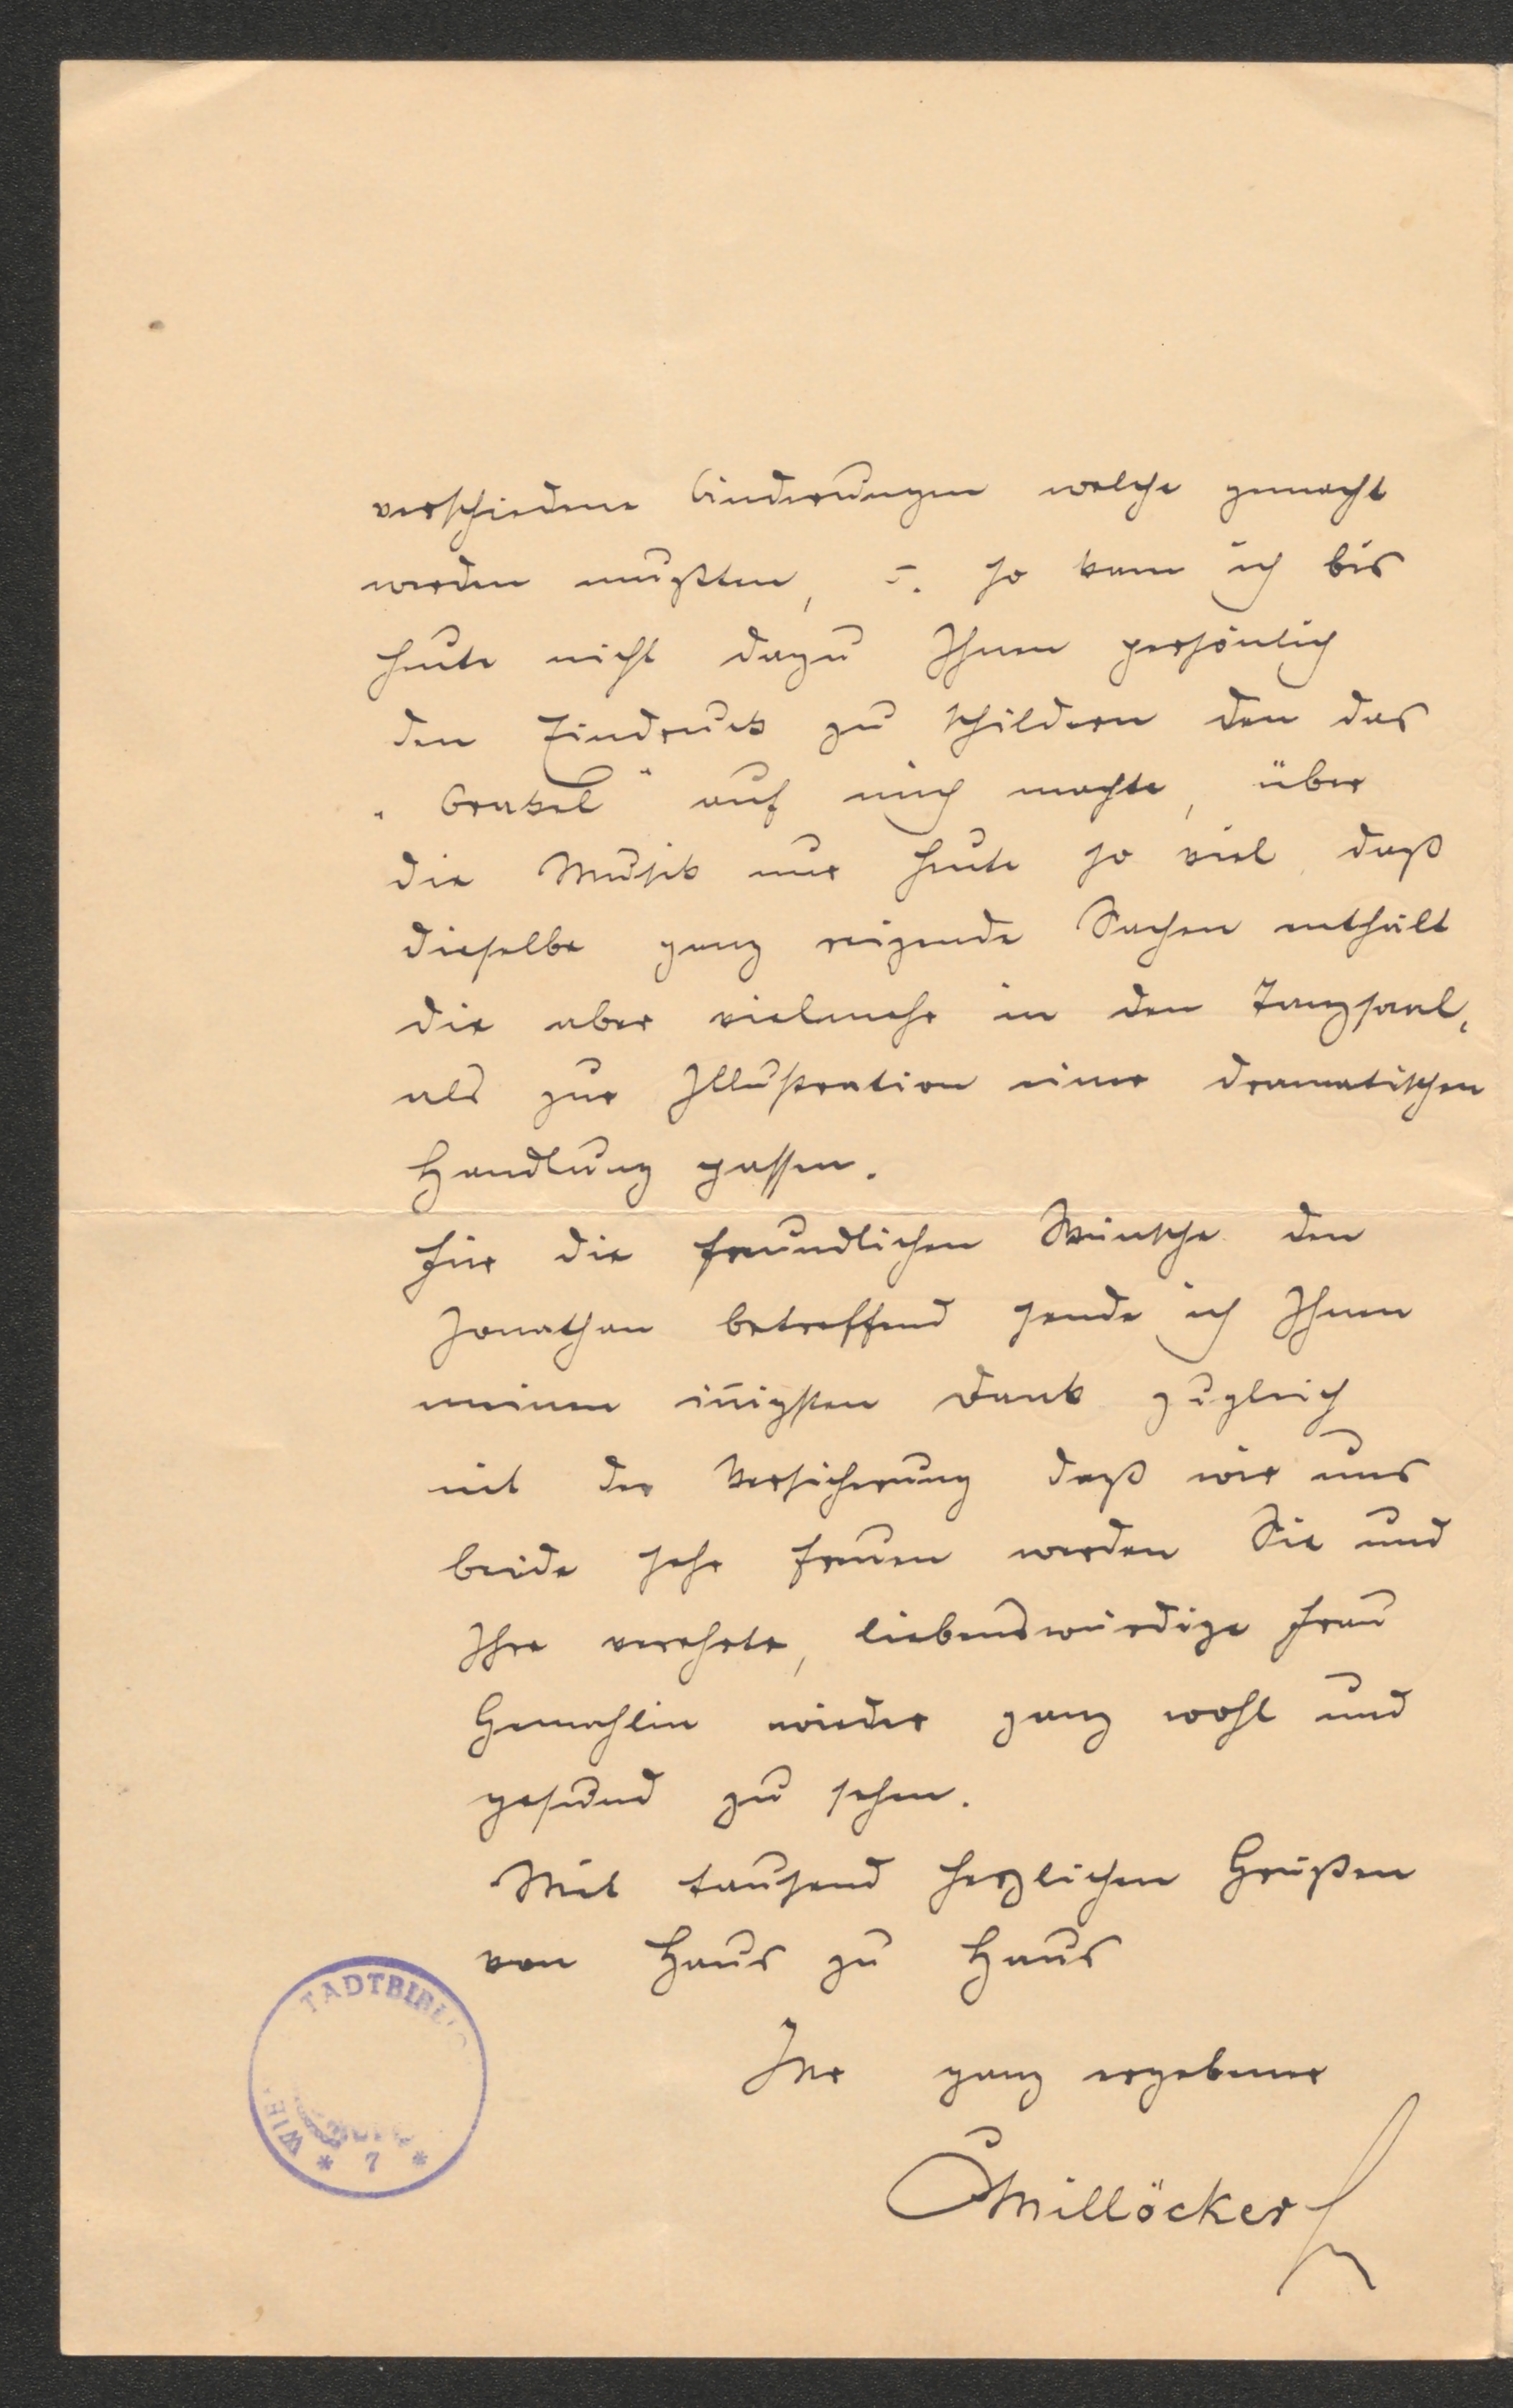 verschiedene Änderungen welche gemacht
werden mußten, u. so kam ich bis
heute nicht dazu Ihnen persönlich
den Eindruck zu schildern den das
„Orakel“ auf mich machte, über
die Musik nur heute so viel, daß
dieselbe ganz reizende Sachen enthält
die aber vielmehr in den Tanzsaal,
als zur Illustration einer dramatischen
Handlung passen.
Für die freundlichen Wünsche den
Jonathan betreffend sende ich Ihnen
meinen in̄igsten Dank zugleich
mit der Versicherung daß wir uns
beide sehr freuen werden Sie und
Ihre verehrte, liebenswürdige Frau
Gemahlin wieder ganz wohl und
gesund zu sehen.
Mit tausend herzlichen Grüßen
von Haus zu Haus
Ihr ganz ergebener
CMillöcker
TADTBIBLIO
WIE
* 7 *